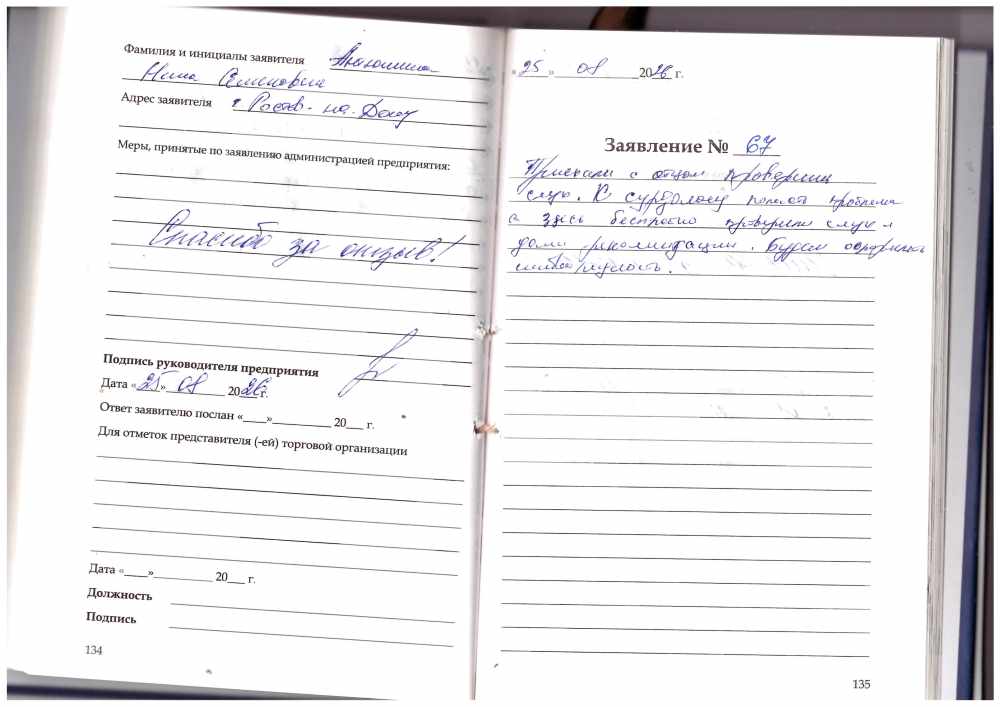 Фамилия и инициалы заявителя
Нина Семеновна
Адрес заявителя г Ростов-на-Дону
Меры, принятые по заявлению администрацией предприятия:
Спасибо за отзыв!
Подпись руководителя предприятия
Дата «25» 08 2026 г.
Ответ заявителю послан «____»__________ 20___ г.
Для отметок представителя (-ей) торговой организации
Дата «____»__________ 20___ г.
Должность
Подпись
134
«25» 08 2026 г.
Заявление № 67
Приехали с отцом проверить
слух. К сурдологу попасть проблема
а здесь бесплатно проверили слух и
дали рекомендации. Будем оформлять
135